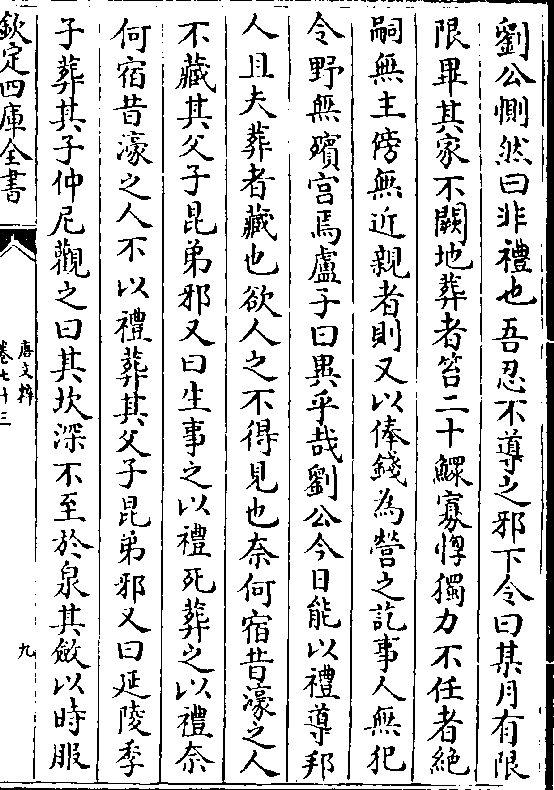 劉公惻然曰非禮也吾忍不導之邪下令曰某月有限
限畢其家不闕地葬者笞二十鰥寡惸獨力不任者絶
嗣無主傍無近親者則又以俸錢為營之訖事人無犯
令野無殯宫焉盧子曰異乎哉劉公今日能以禮導邦
人且夫葬者藏也欲人之不得見也奈何宿昔濠之人
不藏其父子昆弟邪又曰生事之以禮死葬之以禮奈
何宿昔濠之人不以禮葬其父子昆弟邪又曰延陵季
子葬其子仲尼觀之曰其坎深不至於泉其斂以時服
欽定四庫全書
唐文粹
卷七十三
九